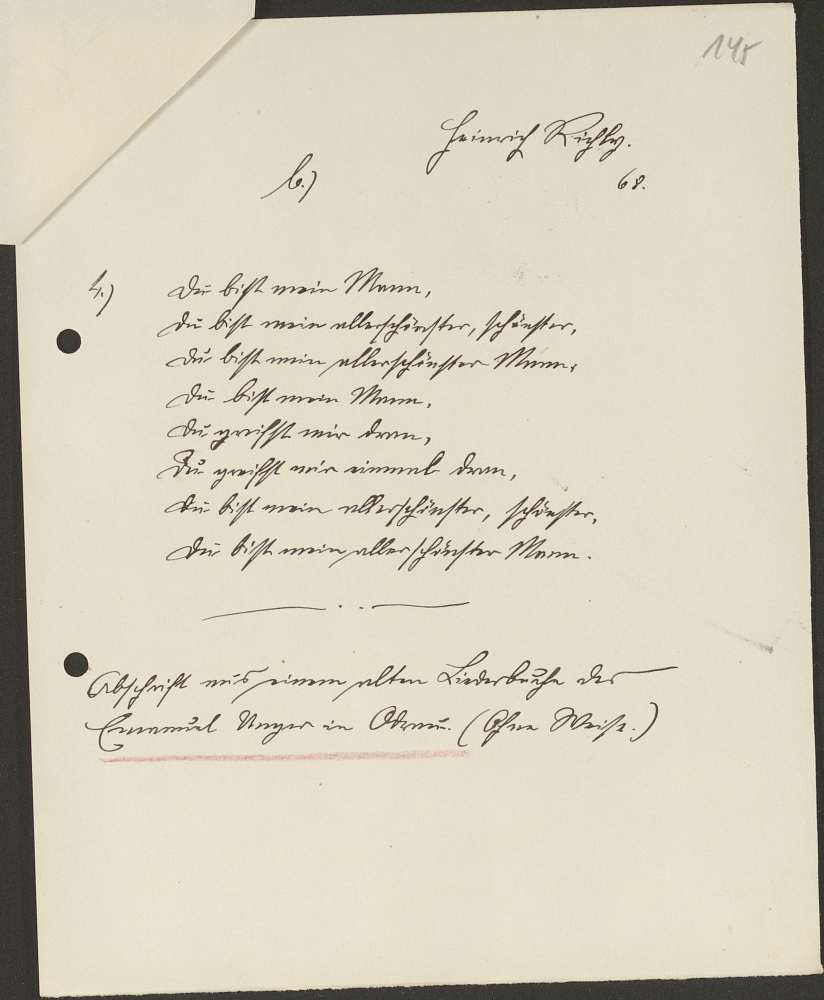 145
Heinrich Richly.
b.)
68.
4.) Du bist mein Mann,
Du bist mein allerschönster, schönster,
Du bist mein allerschönster Mann.
Du bist mein Mann,
Du greifst mir dran,
Du greifst mir einmal dran,
Du bist mein allerschönster, schönster,
Du bist mein allerschönster Mann.
Abschrift aus einem alten Liederbuche des
Emanuel Unger in Odrau. (Ohne Weise.)